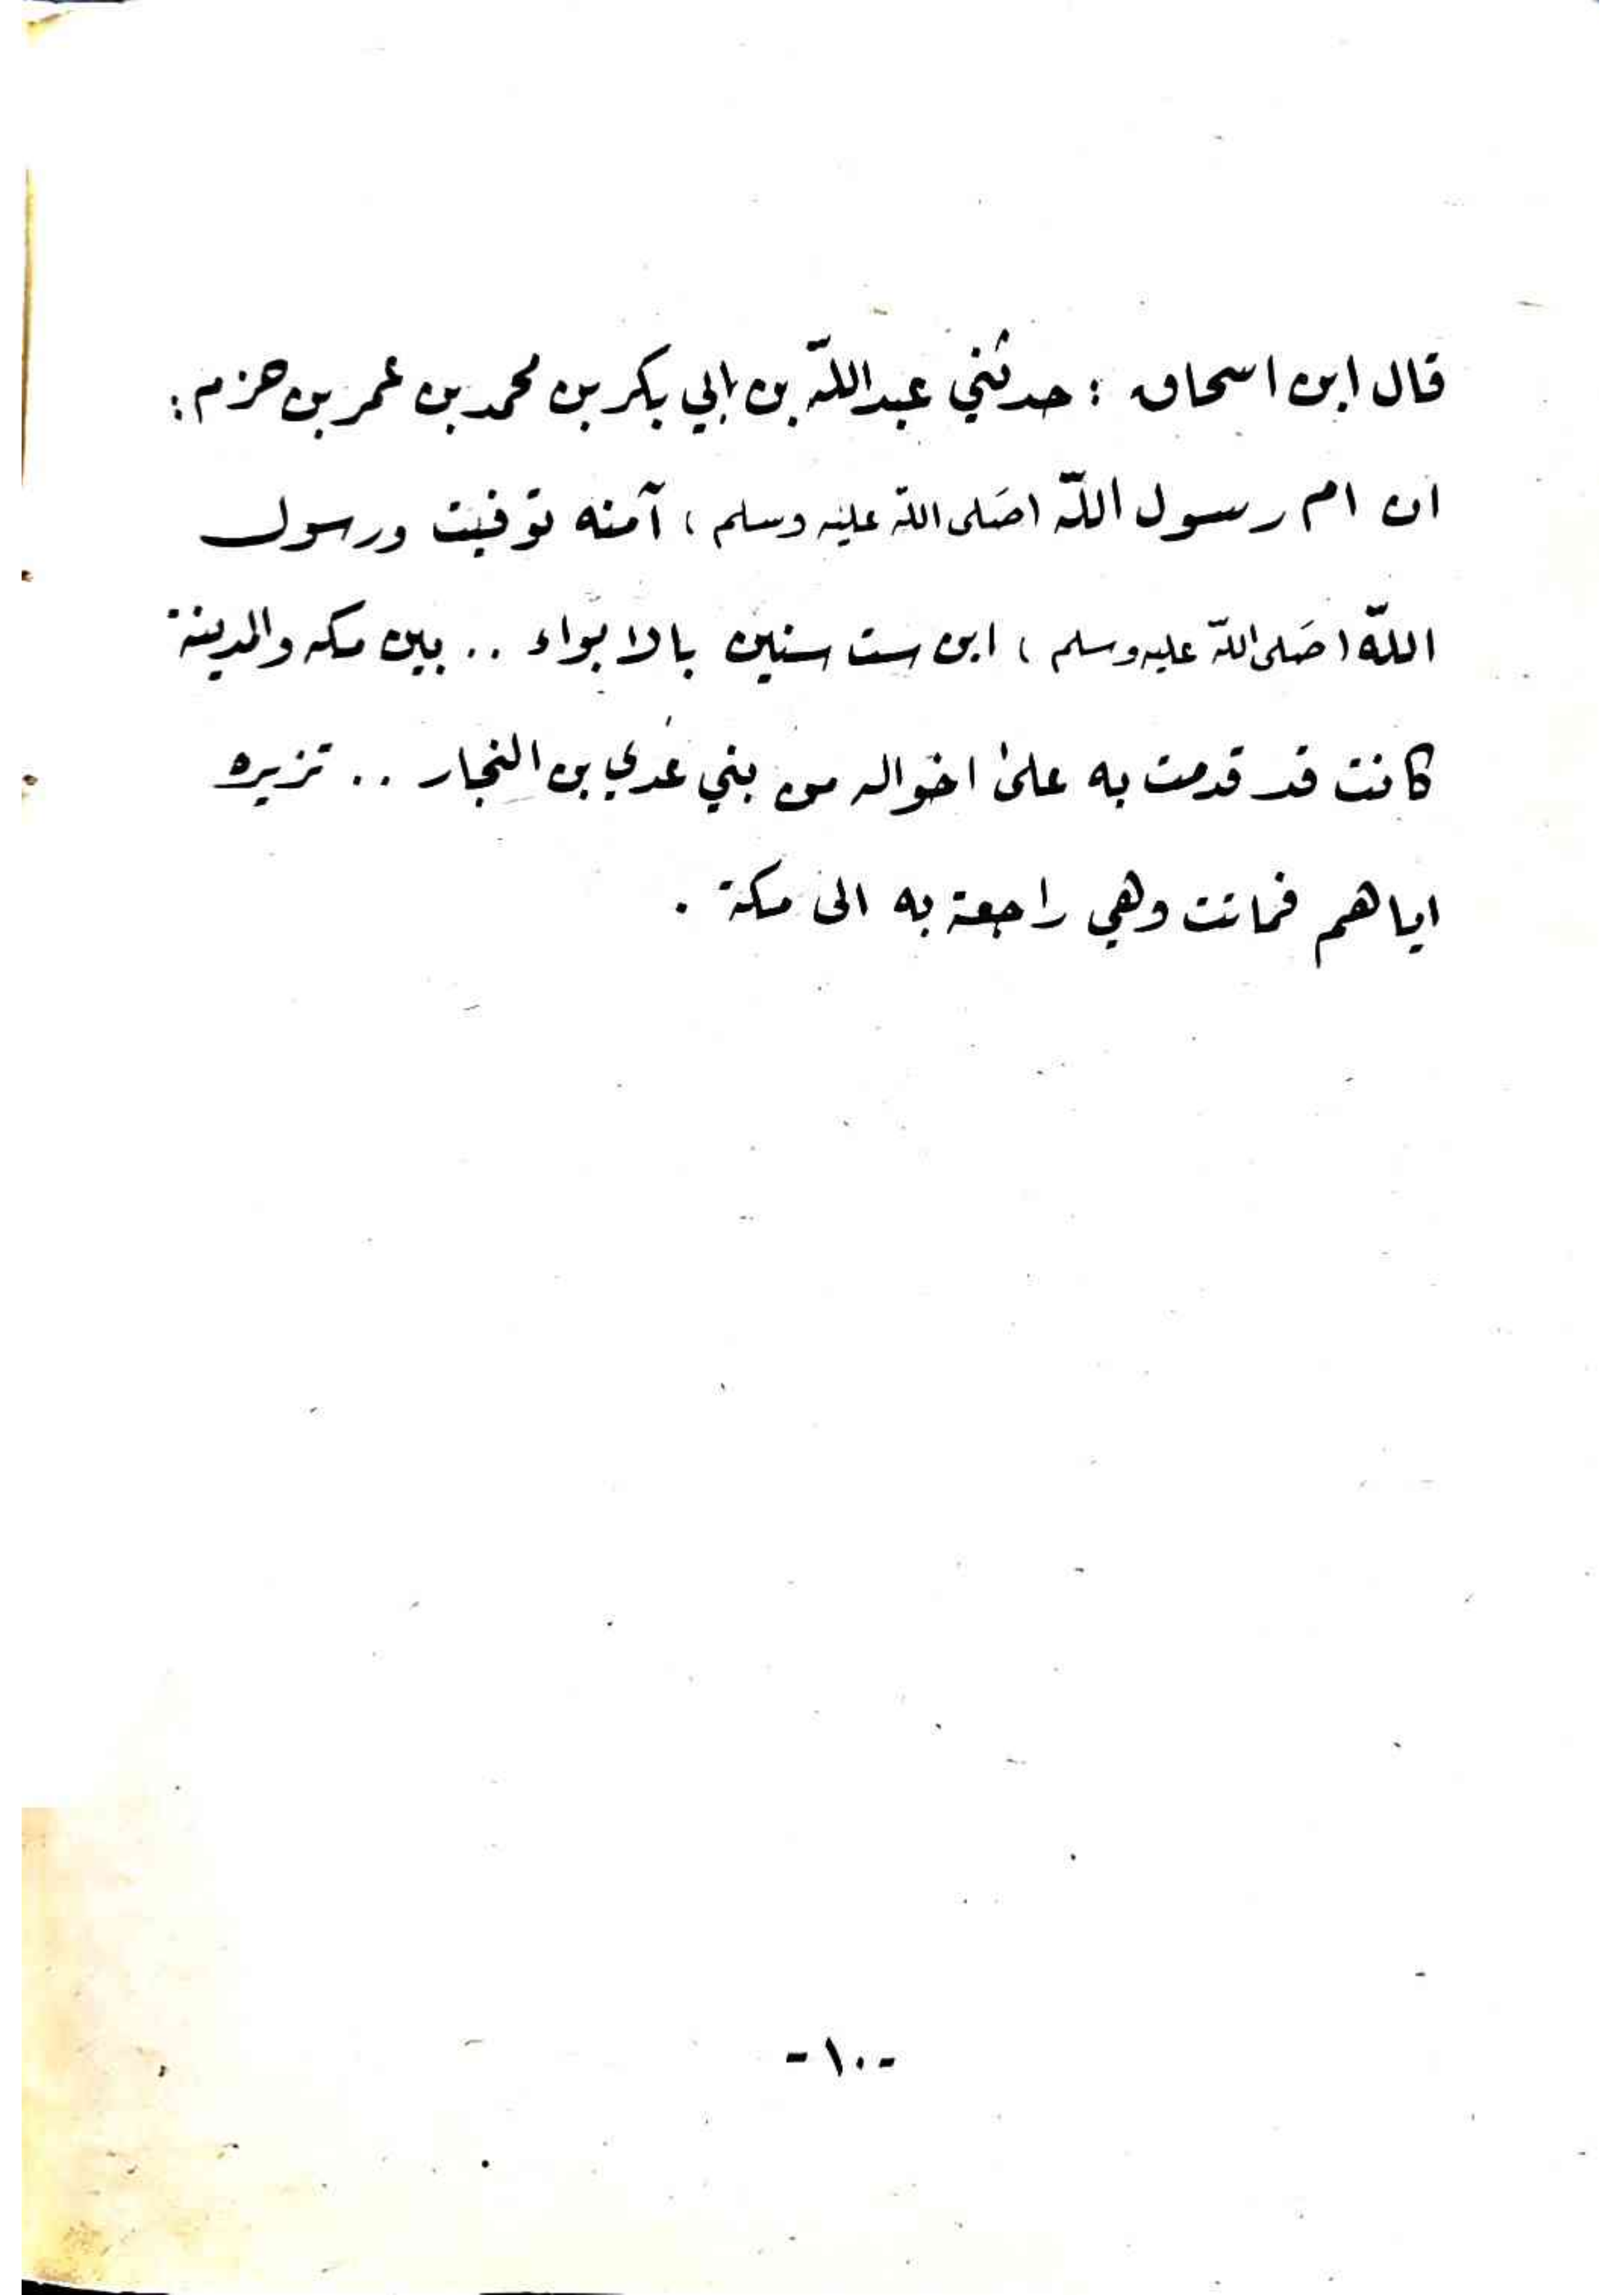 قال ابن اسحاق : حدثني عبدالله بن ابي بكر بن محمد بن عمر بن حزم :
ان ام رسول الله (صلى الله عليه وسلم) آمنه توفيت ورسول
الله (صلى الله عليه وسلم) ابن ست سنين بالابواء .. بين مكه والمدينة
كانت قد قدمت به على اخواله من بني عدي بن النجار .. تزيره
اياهم فماتت وهي راجعة به الى مكة .
-١٠-